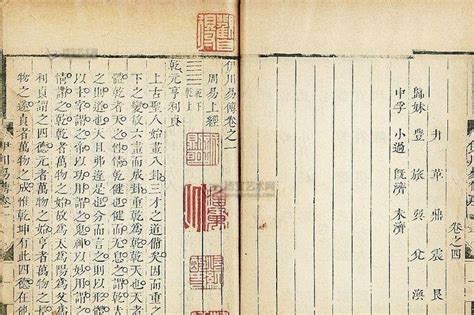 卷之四
井 革 鼎 震 艮
歸妹 豐 旅 巽 兌 渙
中孚 小過 既濟 未濟
伊川易傳卷之一
周易上經
乾下
乾上
乾元亨利貞
上古聖人始畫八卦三才之道備矣因而重之
下之變故六畫而成卦重乾為乾乾天也天
體乾者天之性情乾健也健而无息之謂
之則道也天且弗違是也分而言之則以形
以主宰謂之帝以功用謂之鬼神以妙用謂之
以性情謂之乾乾者萬物之始故為天為陽為父為
利貞謂之四德元者萬物之始亨者萬物之
物之遂貞者萬物之成惟乾坤有此四德在他